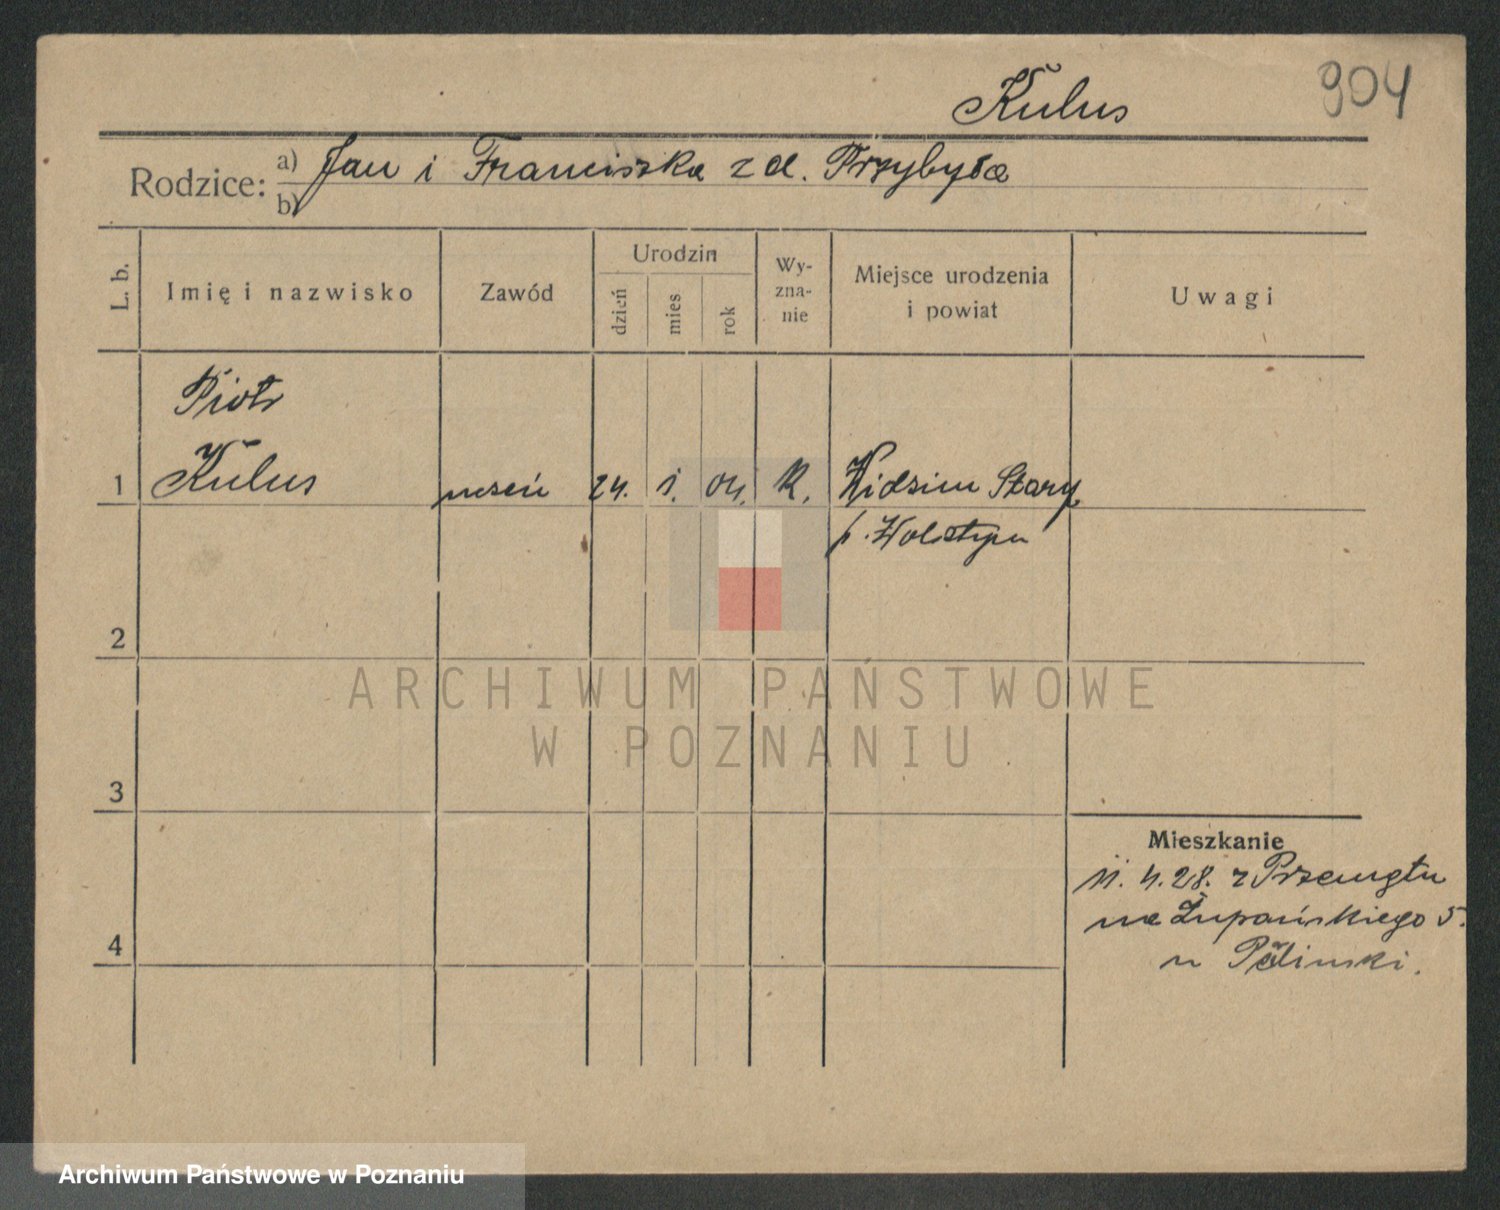 Kulus
904
Rodzice: a) Jan i Franciszka z d. Przybyła
b)
L. b.
Imię i nazwisko
Zawód
Urodzin
dzień
mies
rok
Wy-
zna-
nie
Miejsce urodzenia
i powiat
Uwagi
Piotr
1 Kulus uczeń 24. 1. 04. K. Widzim Stary
p. Wolsztyn
2
3
4
Mieszkanie
11. 4. 28. z Przemętu
na Żupańskiego 5.
u
ARCHIWUM PAŃSTWOWE
W POZNANIU
Archiwum Państwowe w Poznaniu